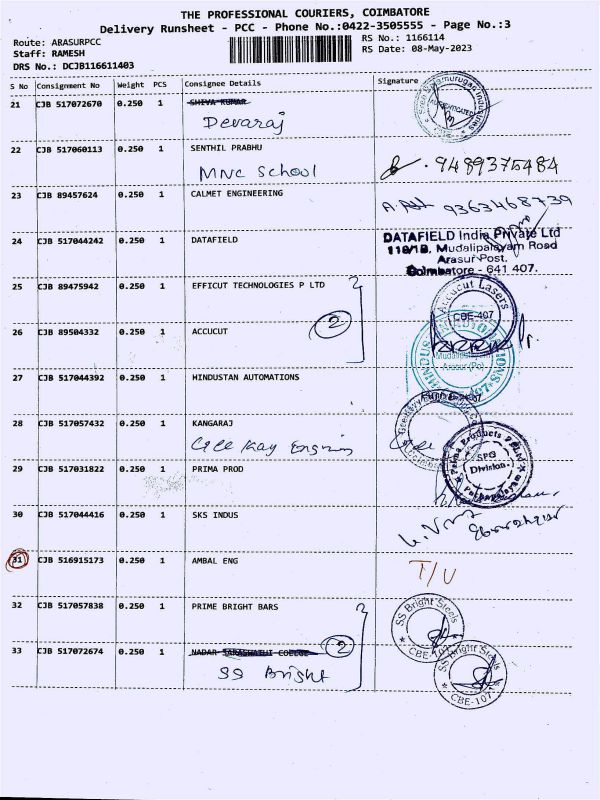 THE PROFESSIONAL COURIERS, COIMBATORE
Delivery Runsheet - PCC - Phone No.:0422-3505555 - Page No.:3
Route: ARASURPCC
RS No.: 1166114
Staff: RAMESH
RS Date: 08-May-2023
DRS No.: DCJB116611403
S No Consignment No Weight PCS Consignee Details Signature
21 CJB 517072670 0.250 1 SHIVA KUMAR
Devaraj
22 CJB 517060113 0.250 1 SENTHIL PRABHU
MNC School 9489375484
23 CJB 89457624 0.250 1 CALMET ENGINEERING
9363468739
24 CJB 517044242 0.250 1 DATAFIELD
DATAFIELD India Private Ltd
118/1B, Mudalipalayam Road
Arasur Post,
Coimbatore - 641 407.
25 CJB 89475942 0.250 1 EFFICUT TECHNOLOGIES P LTD
Accucut Lasers
CBE-407
2
26 CJB 89504332 0.250 1 ACCUCUT
Arasur (Po)
27 CJB 517044392 0.250 1 HINDUSTAN AUTOMATIONS
28 CJB 517057432 0.250 1 KANGARAJ
Kay
29 CJB 517031822 0.250 1 PRIMA PROD
Prima Products
SPG
Division
30 CJB 517044416 0.250 1 SKS INDUS
31 CJB 516915173 0.250 1 AMBAL ENG
T/U
32 CJB 517057838 0.250 1 PRIME BRIGHT BARS
SS Bright Steels
CBE-107
2
33 CJB 517072674 0.250 1 NADAR SARASWATHI COLLGE
SS Bright
SS Bright Steels
CBE-107